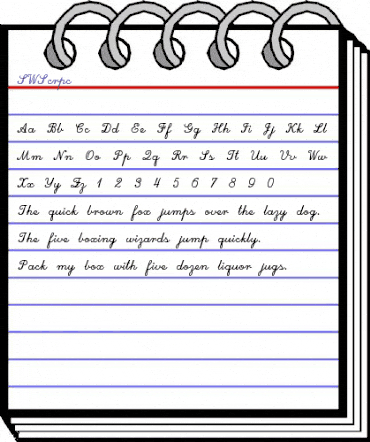 SWScrpc
Aa Bb Cc Dd Ee Ff Gg Hh Ii Jj Kk Ll
Mm Nn Oo Pp Qq Rr Ss Tt Uu Vv Ww
Xx Yy Zz 1 2 3 4 5 6 7 8 9 0
The quick brown fox jumps over the lazy dog.
The five boxing wizards jump quickly.
Pack my box with five dozen liquor jugs.